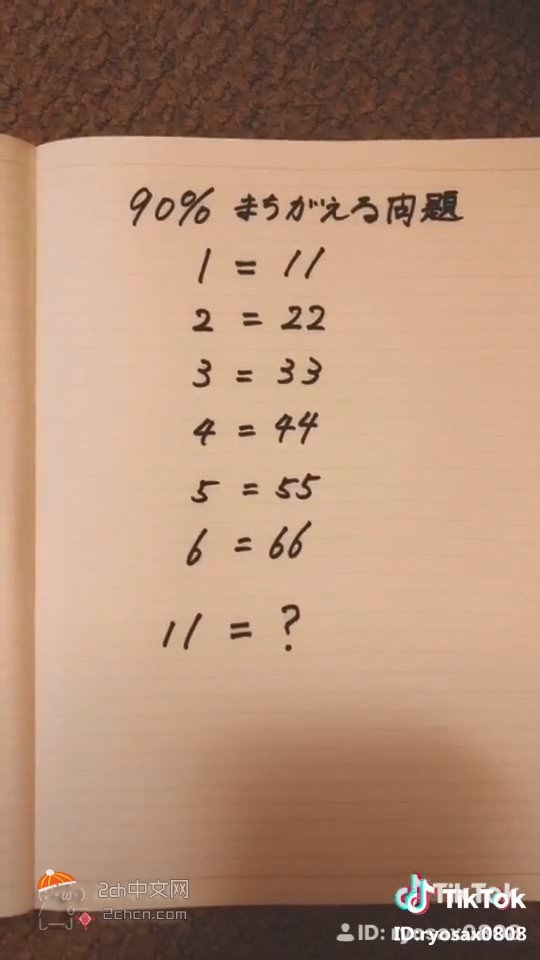 90% まちがえる問題
1 = 11
2 = 22
3 = 33
4 = 44
5 = 55
6 = 66
11 = ?
2ch中文网
2chcn.com
TikTok
TikTok
ID: ryosax0808
ID:ryosax0808